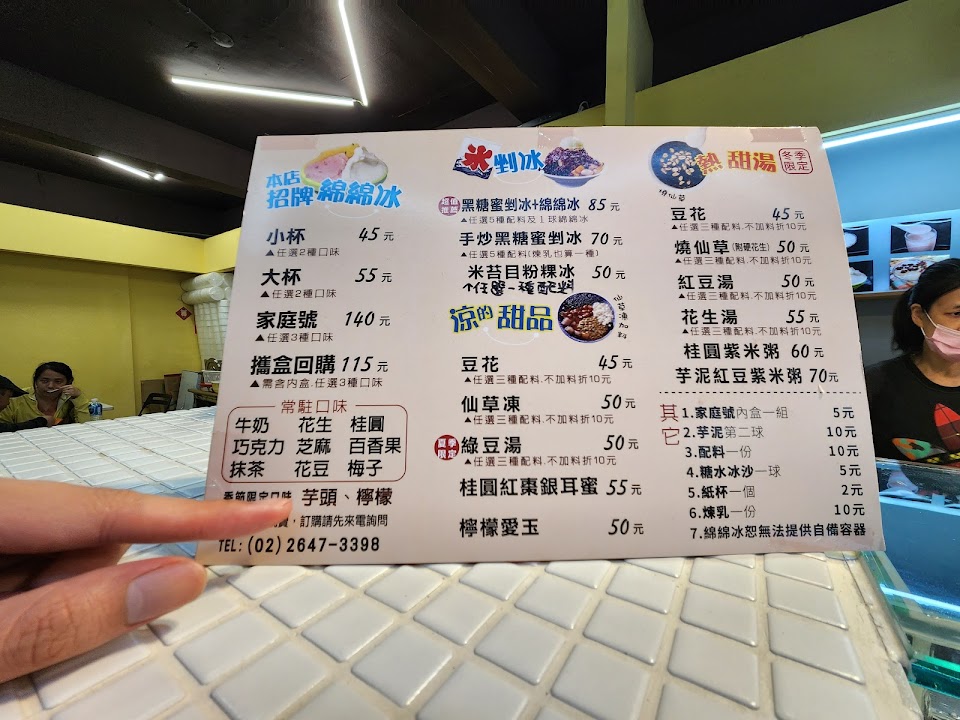 本店
招牌 綿綿冰
小杯 45元
▲任選2種口味
大杯 55元
▲任選2種口味
家庭號 140元
▲任選3種口味
攜盒回購 115元
▲需含內盒.任選3種口味
常駐口味
牛奶 花生 桂圓
巧克力 芝麻 百香果
抹茶 花豆 梅子
季節限定口味 芋頭、檸檬
訂購請先來電詢問
TEL:(02)2647-3398
氷 剉冰
超值推薦 黑糖蜜剉冰+綿綿冰 85元
▲任選5種配料及1球綿綿冰
手炒黑糖蜜剉冰 70元
▲任選5種配料(煉乳也算一種)
米苔目粉粿冰 50元
↑任選一種配料
涼的甜品
仙草凍加料
豆花 45元
▲任選三種配料.不加料折10元
仙草凍 50元
▲任選三種配料.不加料折10元
夏季限定 綠豆湯 50元
▲任選三種配料.不加料折10元
桂圓紅棗銀耳蜜 55元
檸檬愛玉 50元
熱甜湯 冬季限定
燒仙草
豆花 45元
▲任選三種配料.不加料折10元
燒仙草(附硬花生) 50元
▲任選三種配料.不加料折10元
紅豆湯 50元
▲任選三種配料.不加料折10元
花生湯 55元
▲任選三種配料.不加料折10元
桂圓紫米粥 60元
芋泥紅豆紫米粥 70元
其它
1.家庭號內盒一組 5元
2.芋泥第二球 10元
3.配料一份 10元
4.糖水冰沙一球 5元
5.紙杯一個 2元
6.煉乳一份 10元
7.綿綿冰恕無法提供自備容器